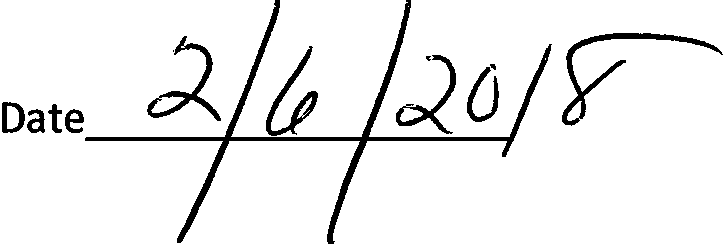 Date 2/6/2018